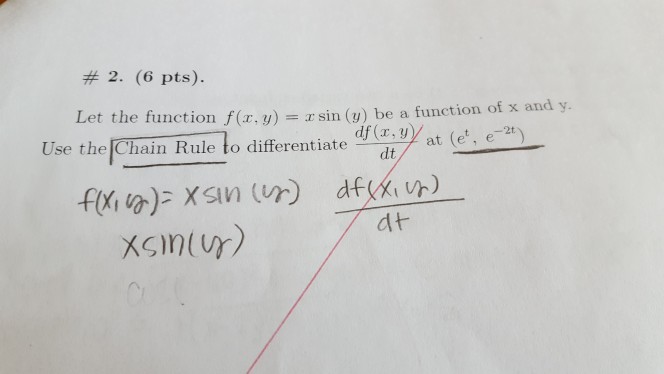 # 2. (6 pts).
Let the function f(x, y) = x sin (y) be a function of x and y.
Use the Chain Rule to differentiate df(x, y)/dt at (e^t, e^{-2t})
f(x, y) = x sin (y) df(x, y)/dt
x sin(y)